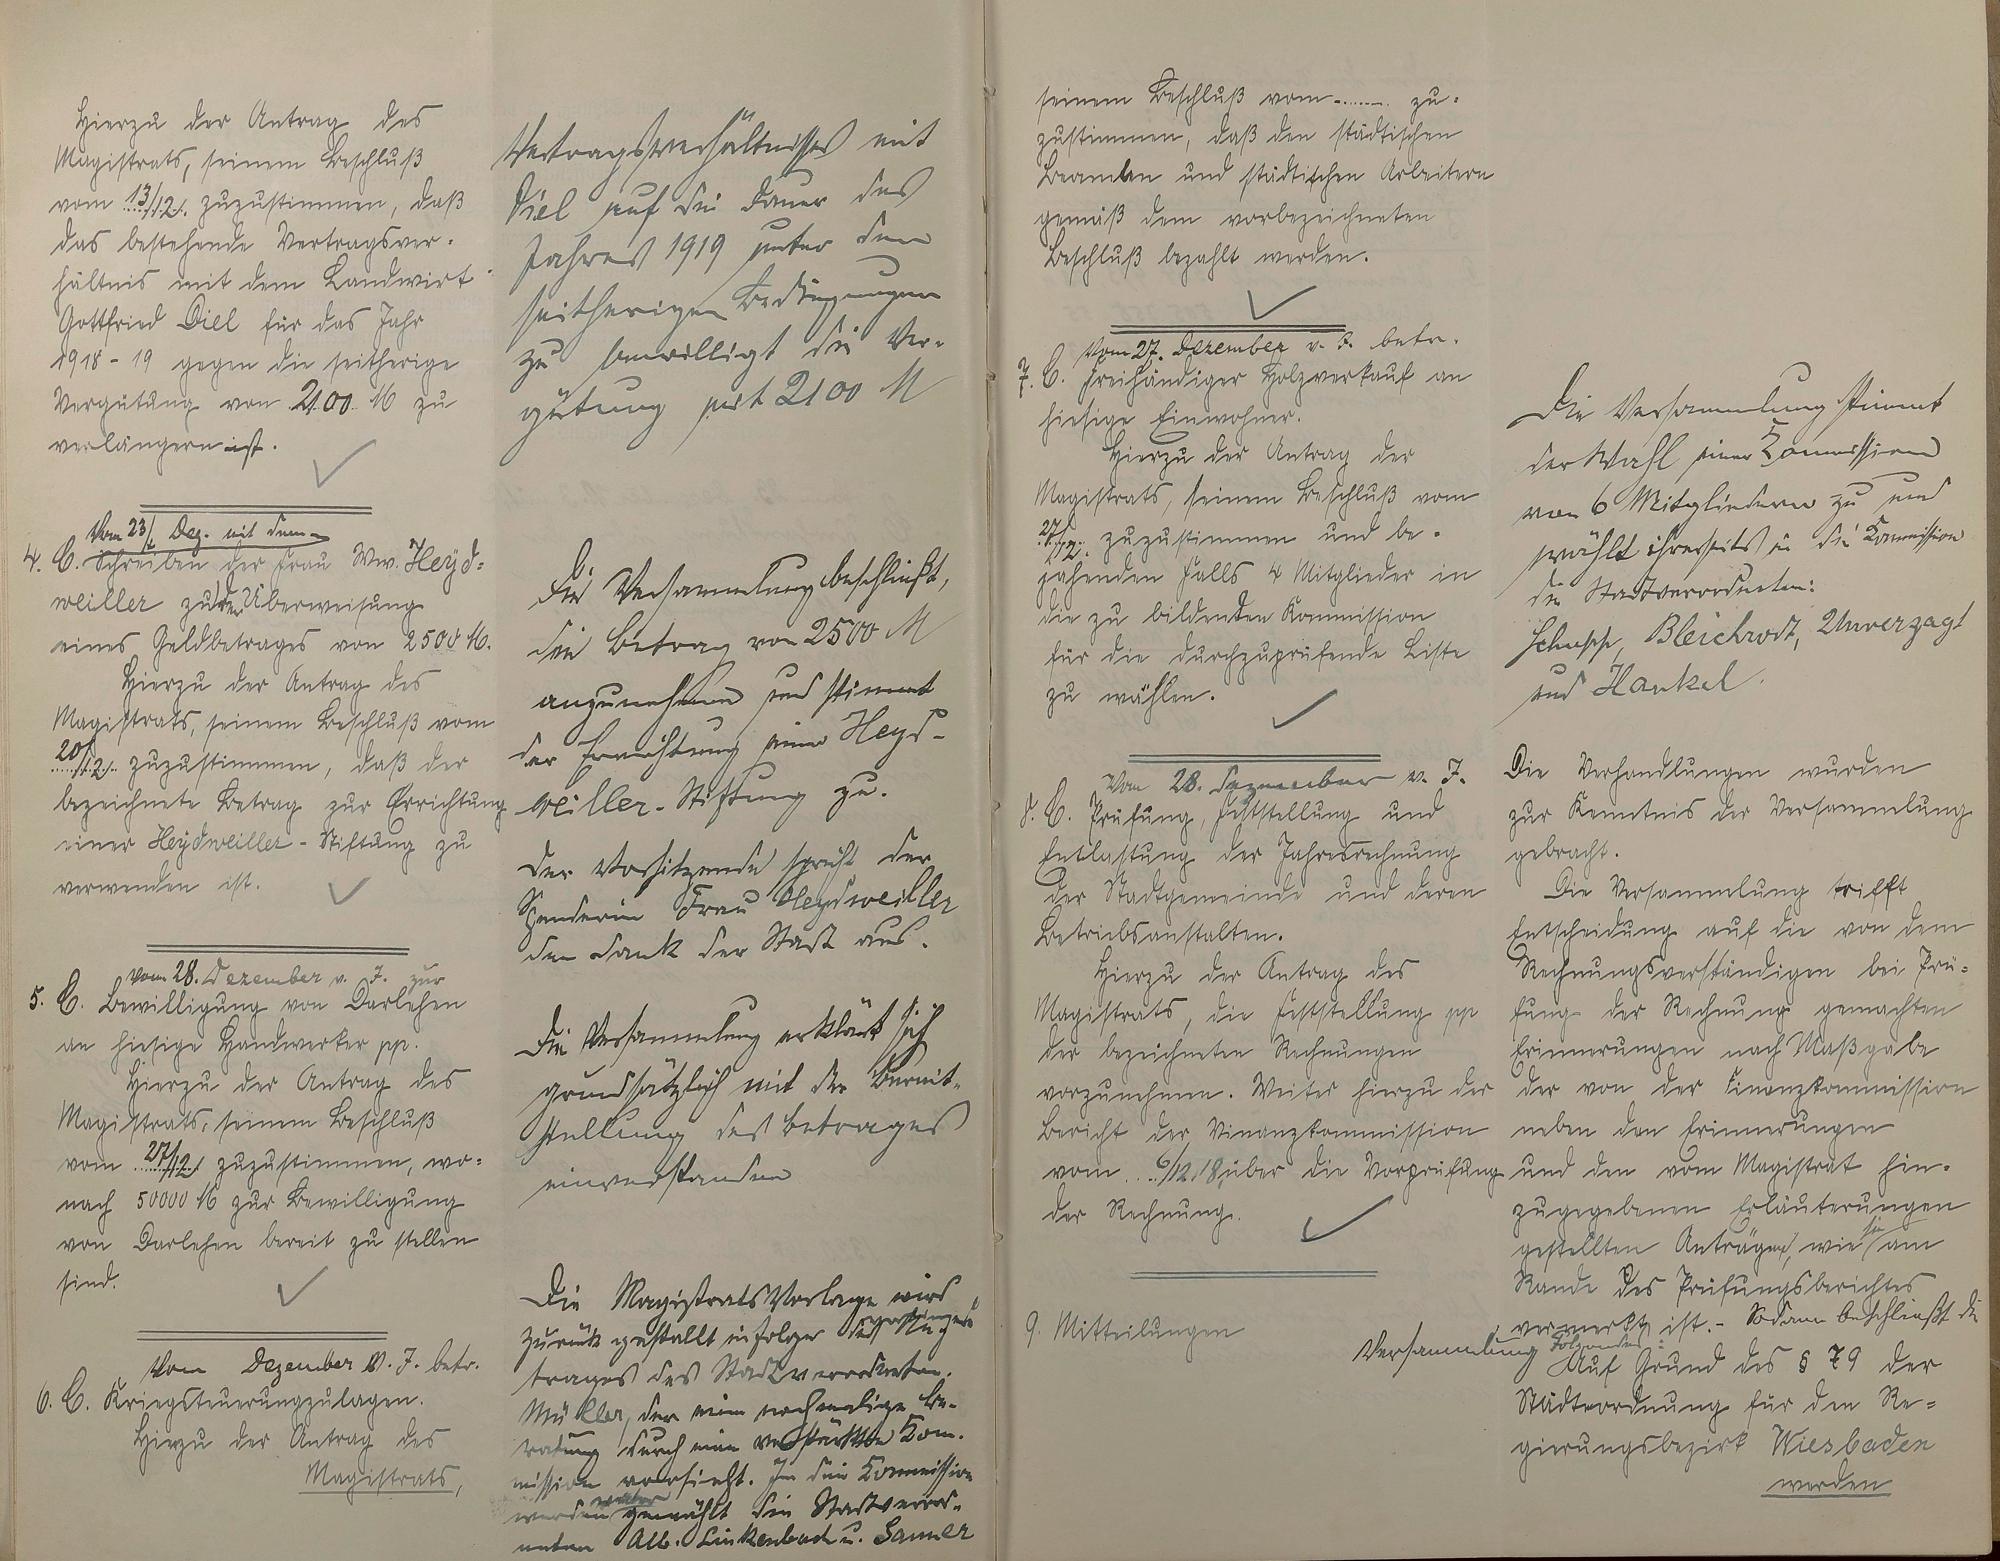 Hierzu der Antrag des
Magistrats, seinem Beschluß
vom 13/12. zuzustimmen, daß
das bestehende Vertragsver-
hältnis mit dem Landwirt
Gottfried Diel für das Jahr
1918-19 gegen die seitherige
Vergütung von 2100 M zu
verlängern ist.
Vom 23/ Dez. mit dem
4. C. Schreiben der Frau Ww. Heyd-
weiller zu der Überweisung
eines Geldbetrages von 2500 M.
Hierzu der Antrag des
Magistrats, seinem Beschluß vom
20/12. zuzustimmen, daß der
bezeichnete Betrag zur Errichtung
einer Heydweiller-Stiftung zu
verwenden ist.
Vom 28. Dezember v. J. zur
5. C. Bewilligung von Darlehen
an hiesige Handwerker pp.
Hierzu der Antrag des
Magistrats, seinem Beschluß
vom 27/12. zuzustimmen, wo-
nach 50000 M zur Bewilligung
von Darlehen bereit zu stellen
sind.
Vom Dezember v. J. betr.
6. C. Kriegsteuerungzulagen.
Hierzu der Antrag des
Magistrats,
Vertragsverhältnisses mit
Diel auf die Dauer des
Jahres 1919 unter den
seitherigen Bedingungen
zu bewilligt die Ver-
gütung mit 2100 M
Die Versammlung beschließt,
den Betrag von 2500 M
anzunehmen und stimmt
der Errichtung einer Heyd-
weiller-Stiftung zu.
Der Vorsitzende spricht der
Spenderin Frau Heydweiller
den Dank der Stadt aus.
Die Versammlung erklärt sich
grundsätzlich mit der Bereit-
stellung des Betrages
einverstanden
Die Magistratsvorlage wird
zurück gestellt infolge des An-
trages des Stadtverordneten
Müller, der eine nochmalige Be-
ratung durch eine verstärkte Kom-
mission vorsieht. In die Kommission
werden weiter gewählt die Stadtverord-
neten Alb. Linkenbach u. Sauer
seinem Beschluß vom ........ zu-
zustimmen, daß den städtischen
Beamten und städtischen Arbeitern
gemäß dem vorbezeichneten
Beschluß bezahlt werden.
Vom 27. Dezember v. J. betr.
7. C. freihändiger Holzverkauf an
hiesige Einwohner.
Hierzu der Antrag der
Magistrats, seinem Beschluß vom
27/12. zuzustimmen und be-
jahenden Falls 4 Mitglieder in
die zu bildenden Kommission
für die durchzuprüfende Liste
zu wählen.
Vom 28. Dezember v. J.
8. C. Prüfung, Feststellung und
Entlastung der Jahresrechnung
der Stadtgemeinde und deren
Betriebsanstalten.
Hierzu der Antrag des
Magistrats, die Feststellung pp
der bezeichneten Rechnungen
vorzunehmen. Weiter hierzu der
Bericht der Vinanzkommission
vom 6/12.18. über die Vorprüfung
der Rechnung.
9. Mitteilungen
Die Versammlung stimmt
der Wahl einer Kommission
von 6 Mitgliedern zu und
wählt ihrerseits in die Kommission
die Stadtverordneten:
Bleichrodt, Unverzagt
und Hankel.
Die Verhandlungen wurden
zur Kenntnis der Versammlung
gebracht.
Die Versammlung trifft
Entscheidung auf die von dem
Rechnungsverständigen bei Prü-
fung der Rechnung gemachten
Erinnerungen nach Maßgabe
der von der Finanzkommission
neben den Erinnerungen
und den vom Magistrat hin-
zugegebenen Erläuterungen
gestellten Anträgen, wie sie am
Rande des Prüfungsberichtes
vermerkt ist. - Sodann beschließt die
Versammlung Folgendes:
Auf Grund des § 79 der
Städteordnung für den Re-
gierungsbezirk Wiesbaden
werden